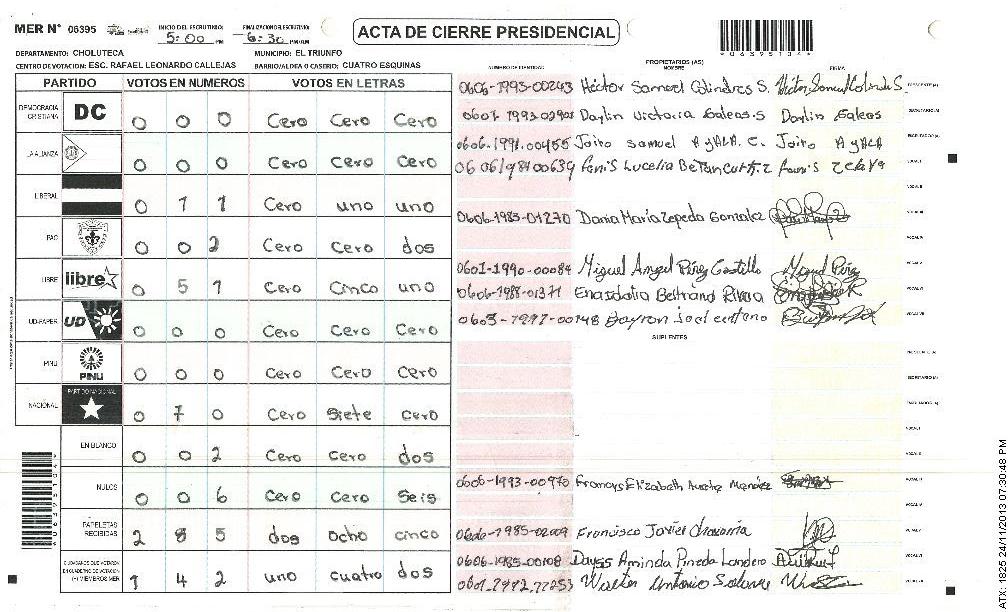 MER N° 06395
INICIO DEL ESCRUTINIO:
5:00 PM
FINALIZACION ESCRUTINIO:
6:30 PM/AM
ACTA DE CIERRE PRESIDENCIAL
06395
DEPARTAMENTO: CHOLUTECA MUNICIPIO: EL TRIUNFO
CENTRO DE VOTACION: ESC. RAFAEL LEONARDO CALLEJAS BARRIO/ALDEA O CASERIO: CUATRO ESQUINAS
PARTIDO VOTOS EN NUMEROS VOTOS EN LETRAS
DEMOCRACIA CRISTIANA DC 0 0 0 Cero Cero Cero
LA ALIANZA 0 0 0 Cero Cero Cero
LIBERAL 0 1 1 Cero uno uno
PAC 0 0 2 Cero Cero dos
LIBRE libre 0 5 1 Cero Cinco uno
UD-FAPER UD 0 0 0 Cero Cero Cero
PINU PINU 0 0 0 Cero Cero Cero
NACIONAL PARTIDO NACIONAL 0 7 0 Cero Siete Cero
EN BLANCO 0 0 2 Cero Cero dos
NULOS 0 0 6 Cero Cero Seis
PAPELETAS RECIBIDAS 2 8 5 dos Ocho cinco
CIUDADANOS QUE VOTARON EN CUADERNO DE VOTACION (+) MIEMBROS MER 1 4 2 uno cuatro dos
NUMERO DE IDENTIDAD PROPIETARIOS (AS) NOMBRE FIRMA
0606-1993-00243 Héctor Samuel Colindres S.
0607 1993 02902 Daylin Victoria Galeas.S Daylin Galeas
0606-1991-00455 Jairo Samuel Ayala. C. Jairo Ayala
0606 1984 00639 Fanis Lucelia Betancurth.z
0606-1983-01270 Dania María Zepeda Gonzalez
0601-1990-00084 Miguel Angel Pérez Castillo Miguel Pérez
0606-1988-01371 Enasdalia Beltrand Rivera
0603-1997-00148 Dayron Joel
SUPLENTES
0606-1993-00970 Francys Elizabeth Mendez
0606-1985-02009 Francisco Javier
0606-1985-00108 Dayss Aminda Pineda Landero
Walter Antonio
ATX: 1825 24/11/2013 07:30:48 PM